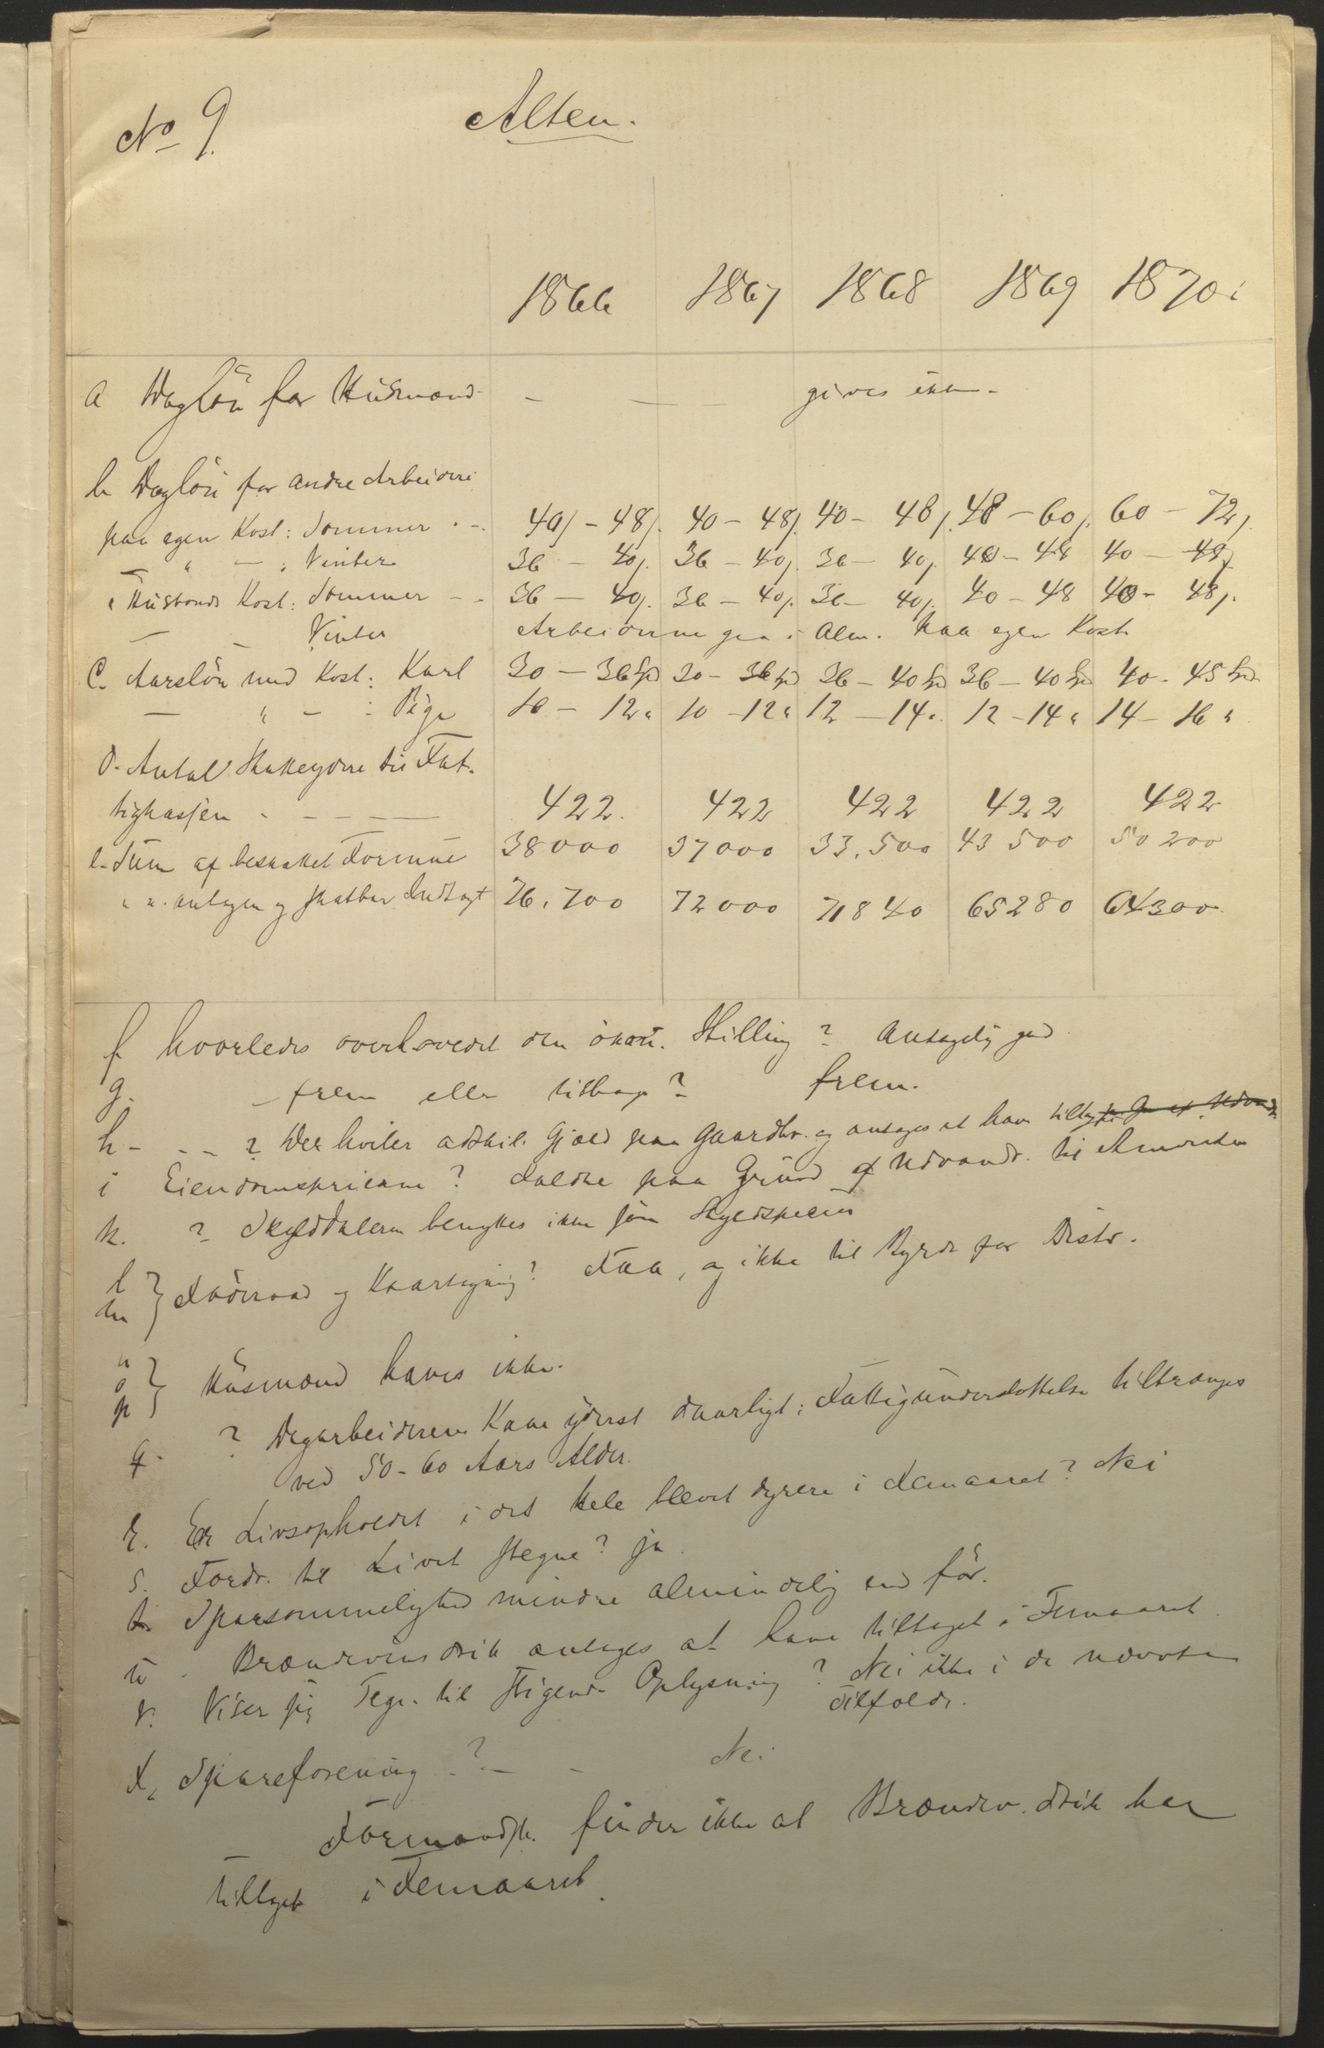 No 9.
Alten.
1866 1867 1868 1869 1870
a Dagløn for Husmænd - — gives ikke -
b Dagløn for andre Arbeidere
paa egen Kost: Sommer - 40 - 48 40 - 48 40 - 48 48 - 60 60 - 72
" — " Vinter 36 - 40 36 - 40 36 - 40 40 - 48 40 - 48
i Husbonds Kost: Sommer - - 36 - 40 36 - 40 36 - 40 40 - 48 40 - 48
— - Vinter Arbeiderne gaa i Alm. paa egen Kost
C. Aarsløn med Kost: Karl 30 - 36 Spd 30 - 36 Spd 36 - 40 Spd 36 - 40 Spd 40 - 45 Spd
— " - : Pige 10 - 12 " 10 - 12 " 12 - 14 " 12 - 14 " 14 - 16 "
d. Antal Skatteydere til Fat-
tigkassen - - — 422. 422 422 422 422
e. Sum af beskattet Formue 38000 37000 33.500 43500 50200
" " antagen og skatbar Indtægt 76.700 72000 71840 65280 64300
f hvorledes overhovedet den økon. Stilling? Antagelig god
g. - frem eller tilbage? frem.
h - - - ? Der hviler adskil. Gjæld paa Gaardbr. og antages at have tiltaget
i Eiendomspriserne? Faldne paa Grund af Udvandr. til Amerika
k. ? Skylddaleren benyttes ikke som
l m } Føderaad og Kaartegning? Faa, og ikke til Byrde for Distr.
n o p } Husmænd haves ikke.
q - ? Dagarbeiderens Kaar yderst daarligt: Fattigunderstøttelse tiltrænges
ved 50-60 Aars Alder.
r. Er Livsopholdet i det hele blevet dyrere i Femaaret? Nei
s. Fordr. til Livet stegne? ja.
t. Sparsommelighed mindre almindelig end før.
u - Brændevinsdrik antages at have tiltaget i Femaaret.
v. Viser sig Tegn til stigende Oplysning? Nei ikke i de nævnte
Tilfælde.
x, Spareforening ? — - Nei
Formandsk. finder ikke at Brændev. drik har
tiltaget i Femaaret.